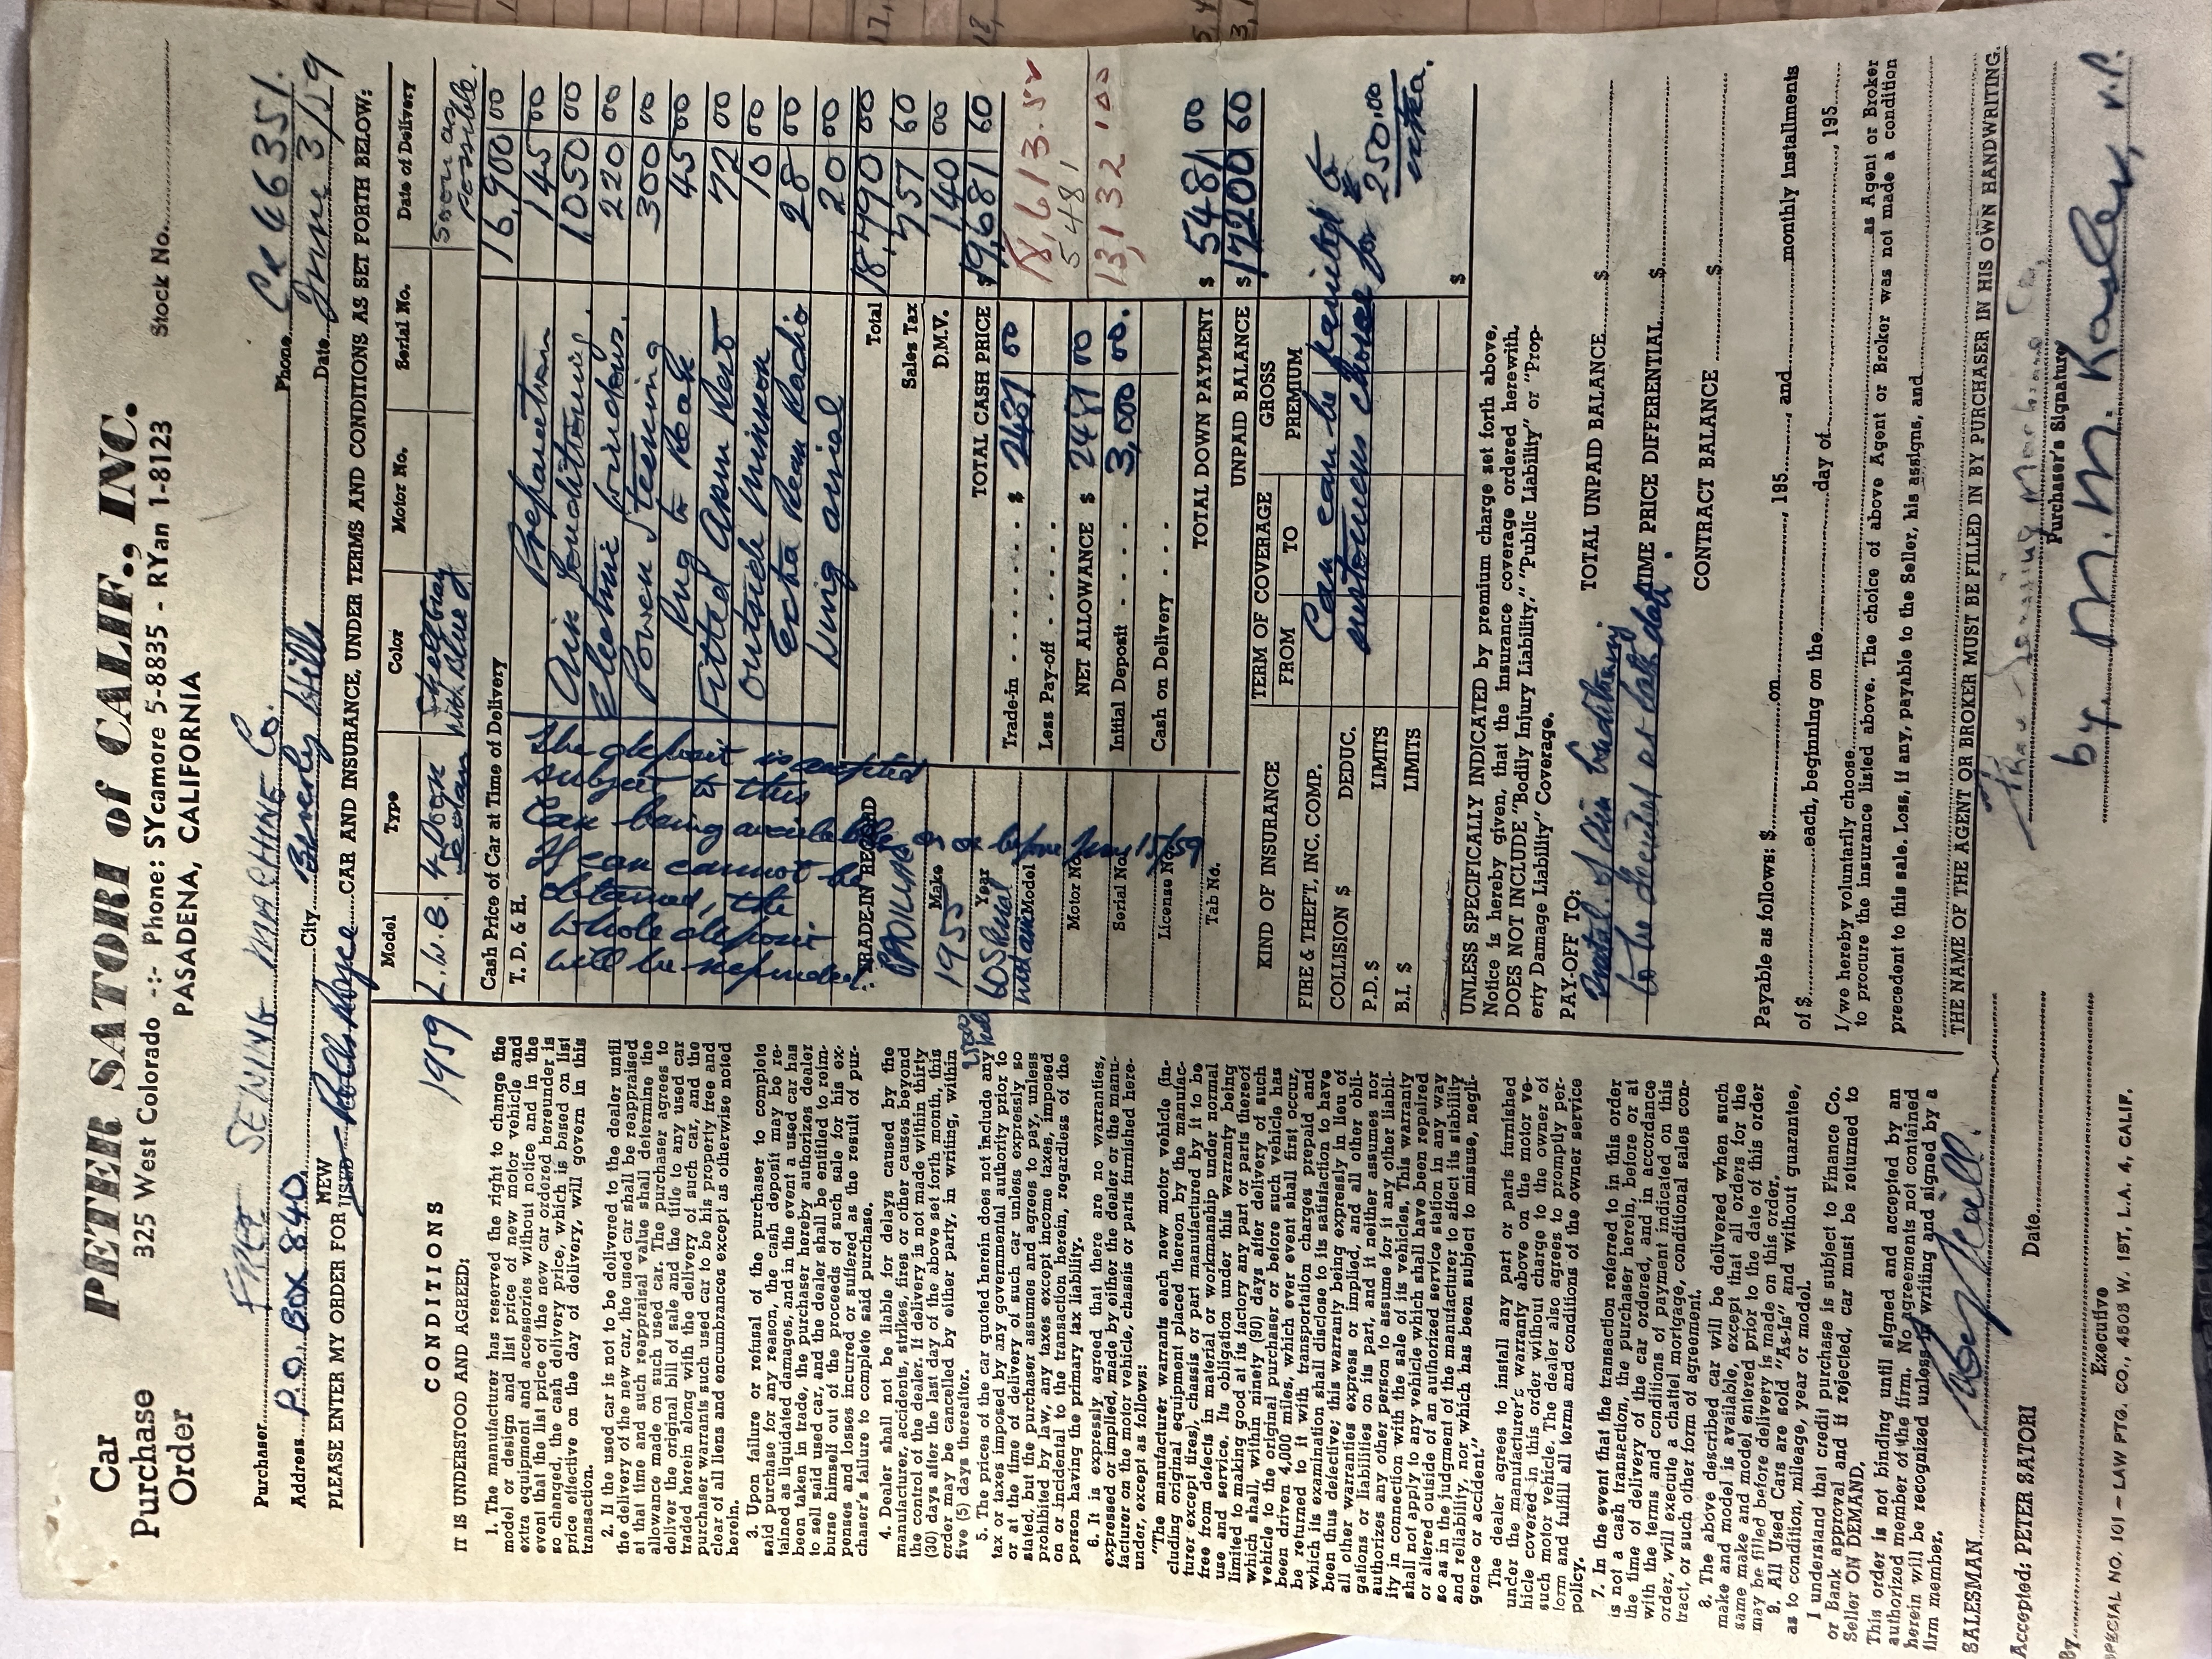 Car
Purchase
Order
PETER SATORI of CALIF., INC.
325 West Colorado -:- Phone: SYcamore 5-8835 - RYan 1-8123
PASADENA, CALIFORNIA
Stock No.
Purchaser FRAY SENNING MACHINE Co. Phone CR 46351.
Address P.O. BOX 840 City Beverly Hills Date June 3/59
PLEASE ENTER MY ORDER FOR NEW USED Rolls Royce CAR AND INSURANCE, UNDER TERMS AND CONDITIONS AS SET FORTH BELOW:
CONDITIONS
IT IS UNDERSTOOD AND AGREED:
1. The manufacturer has reserved the right to change the
model or design and list price of new motor vehicle and
extra equipment and accessories without notice and in the
event that the list price of the new car ordered hereunder is
so changed, the cash delivery price, which is based on list
price effective on the day of delivery, will govern in this
transaction.
2. If the used car is not to be delivered to the dealer until
the delivery of the new car, the used car shall be reappraised
at that time and such reappraisal value shall determine the
allowance made on such used car. The purchaser agrees to
deliver the original bill of sale and the title to any used car
traded herein along with the delivery of such car, and the
purchaser warrants such used car to be his property free and
clear of all liens and encumbrances except as otherwise noted
herein.
3. Upon failure or refusal of the purchaser to complete
said purchase for any reason, the cash deposit may be re-
tained as liquidated damages, and in the event a used car has
been taken in trade, the purchaser hereby authorizes dealer
to sell said used car, and the dealer shall be entitled to reim-
burse himself out of the proceeds of such sale for his ex-
penses and losses incurred or suffered as the result of pur-
chaser's failure to complete said purchase.
4. Dealer shall not be liable for delays caused by the
manufacturer, accidents, strikes, fires or other causes beyond
the control of the dealer. If delivery is not made within thirty
(30) days after the last day of the above set forth month, this
order may be cancelled by either party, in writing, within
five (5) days thereafter.
5. The prices of the car quoted herein does not include any
tax or taxes imposed by any governmental authority prior to
or at the time of delivery of such car unless expressly so
stated, but the purchaser assumes and agrees to pay, unless
prohibited by law, any taxes except income taxes, imposed
on or incidental to the transaction herein, regardless of the
person having the primary tax liability.
6. It is expressly agreed that there are no warranties,
expressed or implied, made by either the dealer or the manu-
facturer on the motor vehicle, chassis or parts furnished here-
under, except as follows:
"The manufacturer warrants each new motor vehicle (in-
cluding original equipment placed thereon by the manufac-
turer except tires), chassis or part manufactured by it to be
free from defects in material or workmanship under normal
use and service. Its obligation under this warranty being
limited to making good at its factory any part or parts thereof
which shall, within ninety (90) days after delivery of such
vehicle to the original purchaser or before such vehicle has
been driven 4,000 miles, which ever event shall first occur,
be returned to it with transportation charges prepaid and
which its examination shall disclose to its satisfaction to have
been thus defective; this warranty being expressly in lieu of
all other warranties express or implied, and all other obli-
gations or liabilities on its part, and it neither assumes nor
authorizes any other person to assume for it any other liabil-
ity in connection with the sale of its vehicles. This warranty
shall not apply to any vehicle which shall have been repaired
or altered outside of an authorized service station in any way
so as in the judgment of the manufacturer to affect its stability
and reliability, nor which has been subject to misuse, negli-
gence or accident."
The dealer agrees to install any part or parts furnished
under the manufacturer's warranty above on the motor ve-
hicle covered in this order without charge to the owner of
such motor vehicle. The dealer also agrees to promptly per-
form and fulfill all terms and conditions of the owner service
policy.
7. In the event that the transaction referred to in this order
is not a cash transaction, the purchaser herein, before or at
the time of delivery of the car ordered, and in accordance
with the terms and conditions of payment indicated on this
order, will execute a chattel mortgage, conditional sales con-
tract, or such other form of agreement.
8. The above described car will be delivered when such
make and model is available, except that all orders for the
same make and model entered prior to the date of this order
may be filled before delivery is made on this order.
9. All Used Cars are sold "As-Is" and without guarantee,
as to condition, mileage, year or model.
I understand that credit purchase is subject to Finance Co.
or Bank approval and if rejected, car must be returned to
Seller ON DEMAND.
This order is not binding until signed and accepted by an
authorized member of the firm. No agreements not contained
herein will be recognized unless in writing and signed by a
firm member.
SALESMAN
Accepted: PETER SATORI Date
By Executive
SPECIAL NO. 101 — LAW PTG. CO., 4505 W. 1ST, L.A. 4, CALIF.
Model Type Color Motor No. Serial No. Date of Delivery
1959 L.W.B. 4 Door Sedan Shell Gray with Blue soon as possible.
Cash Price of Car at Time of Delivery 16,900 00
T. D. & H. Preparation 145 00
Air Conditioning. 1050 00
Electric Windows. 220 00
Power Steering 300 00
Rug to Rear 45 00
Fitted Arm Rest 72 00
Outside Mirror 10 00
Extra Rear Radio 28 00
Wing aerial 20 00
The deposit is accepted
subject to this
Car being available
on or before June 15/59
If car cannot be
obtained, the
whole deposit
will be refunded
Total 18,790 00
Sales Tax 751 60
D.M.V. 140 00
TOTAL CASH PRICE $19,681 60
18,613.50
5481
13,132 100
TRADE-IN RECORD
CADILLAC Make
1955 Year
60 Special Model
Motor No.
Serial No.
License No.
Tab No.
Trade-in $ 2481 00
Less Pay-off
NET ALLOWANCE $ 2481 00
Initial Deposit 3,000 00.
Cash on Delivery
TOTAL DOWN PAYMENT $ 5481 00
UNPAID BALANCE $ 17200 60
KIND OF INSURANCE TERM OF COVERAGE FROM TO GROSS PREMIUM
FIRE & THEFT, INC. COMP.
COLLISION $ DEDUC.
P.D. $ LIMITS
B.I. $ LIMITS
$
Can can be painted to
customers choice for $250.00
extra.
UNLESS SPECIFICALLY INDICATED by premium charge set forth above,
Notice is hereby given, that the insurance coverage ordered herewith,
DOES NOT INCLUDE "Bodily Injury Liability," "Public Liability" or "Prop-
erty Damage Liability" Coverage.
PAY-OFF TO:
to be decided at later date.
TOTAL UNPAID BALANCE $
TIME PRICE DIFFERENTIAL $
CONTRACT BALANCE $
Payable as follows: $ on , 195 , and monthly installments
of $ each, beginning on the day of , 195
I/we hereby voluntarily choose as Agent or Broker
to procure the insurance listed above. The choice of above Agent or Broker was not made a condition
precedent to this sale. Loss, if any, payable to the Seller, his assigns, and
THE NAME OF THE AGENT OR BROKER MUST BE FILLED IN BY PURCHASER IN HIS OWN HANDWRITING.
Purchaser's Signature
by